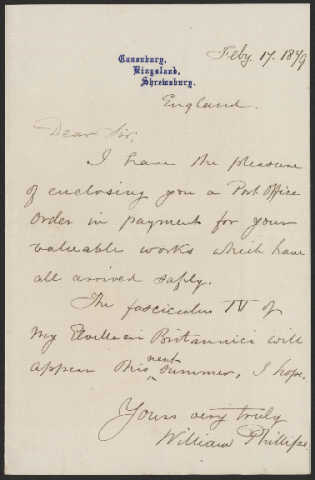 Canonbury,
Kingsland,
Shrewsbury.
Feby. 17. 1879
England.
Dear Sir,
I have the pleasure
of enclosing you a Post Office
Order in payment for your
valuable works which have
all arrived safely.
The fasciculus IV of
my Elvellacei Britannici will
appear this next summer, I hope.
Yours very truly
William Phillips.